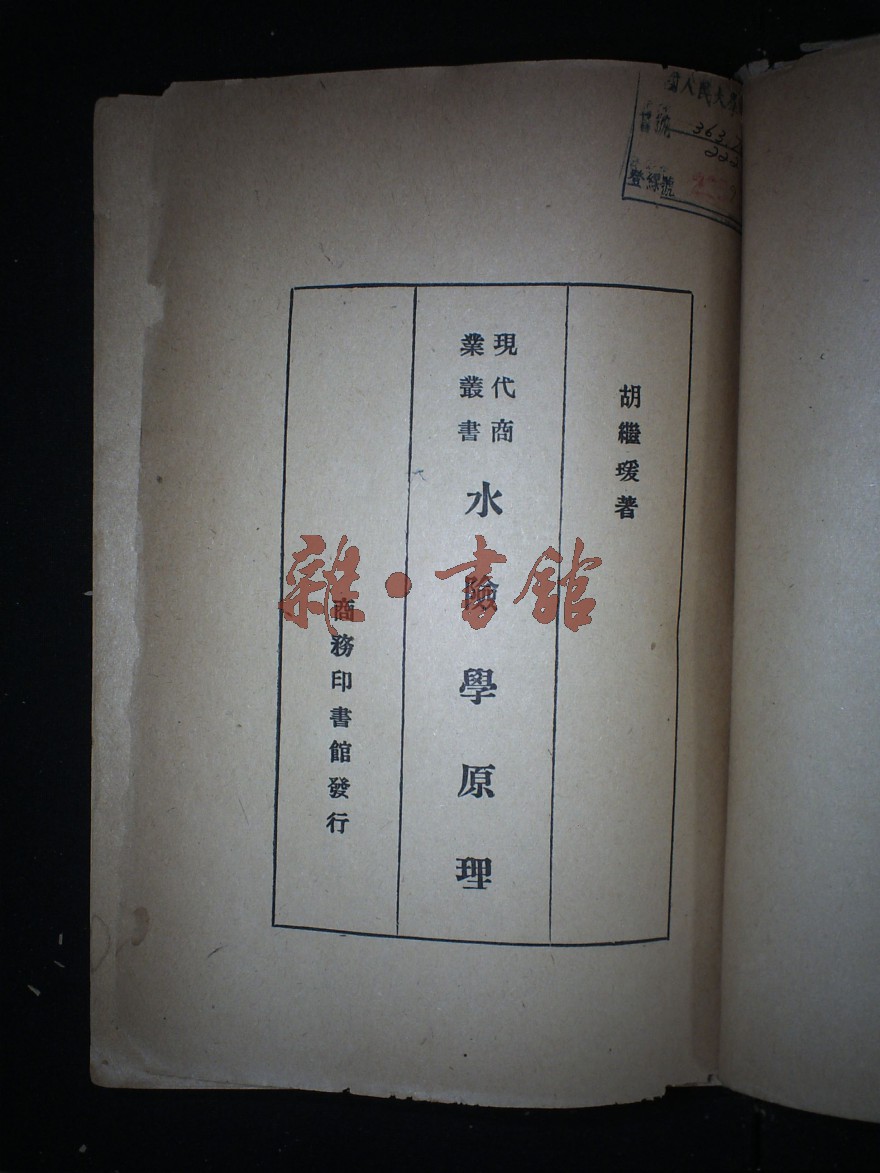 人民大學
號 363.7
222
登錄號
胡繼瑗著
現代商
業叢書
水險學原理
商務印書館發行
雜·書館